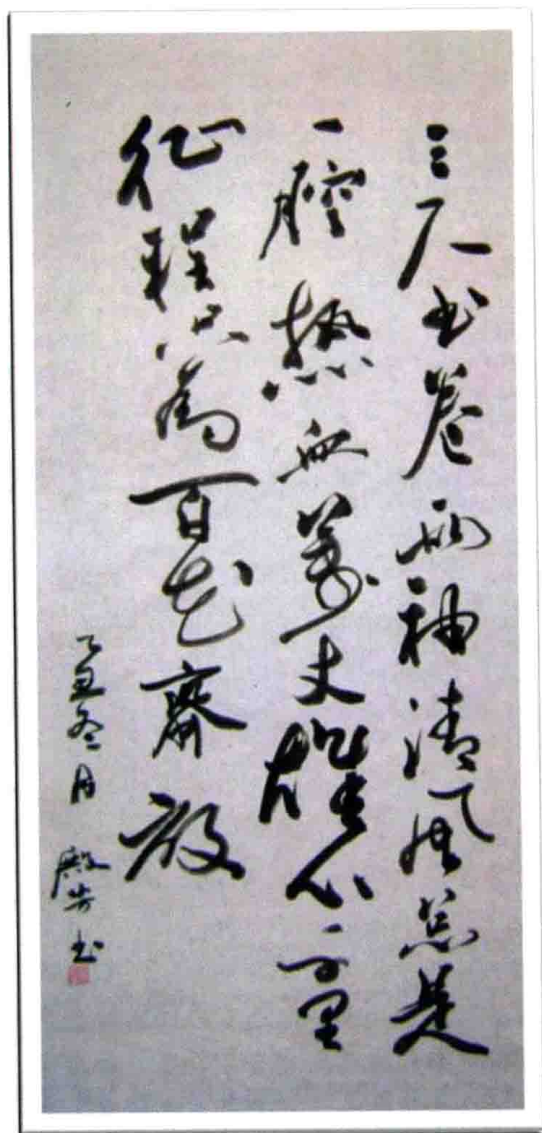 三尺书卷两袖清风总是
一腔热血万丈雄心万里
征程只为百花齐放
乙丑冬月 殿芳书